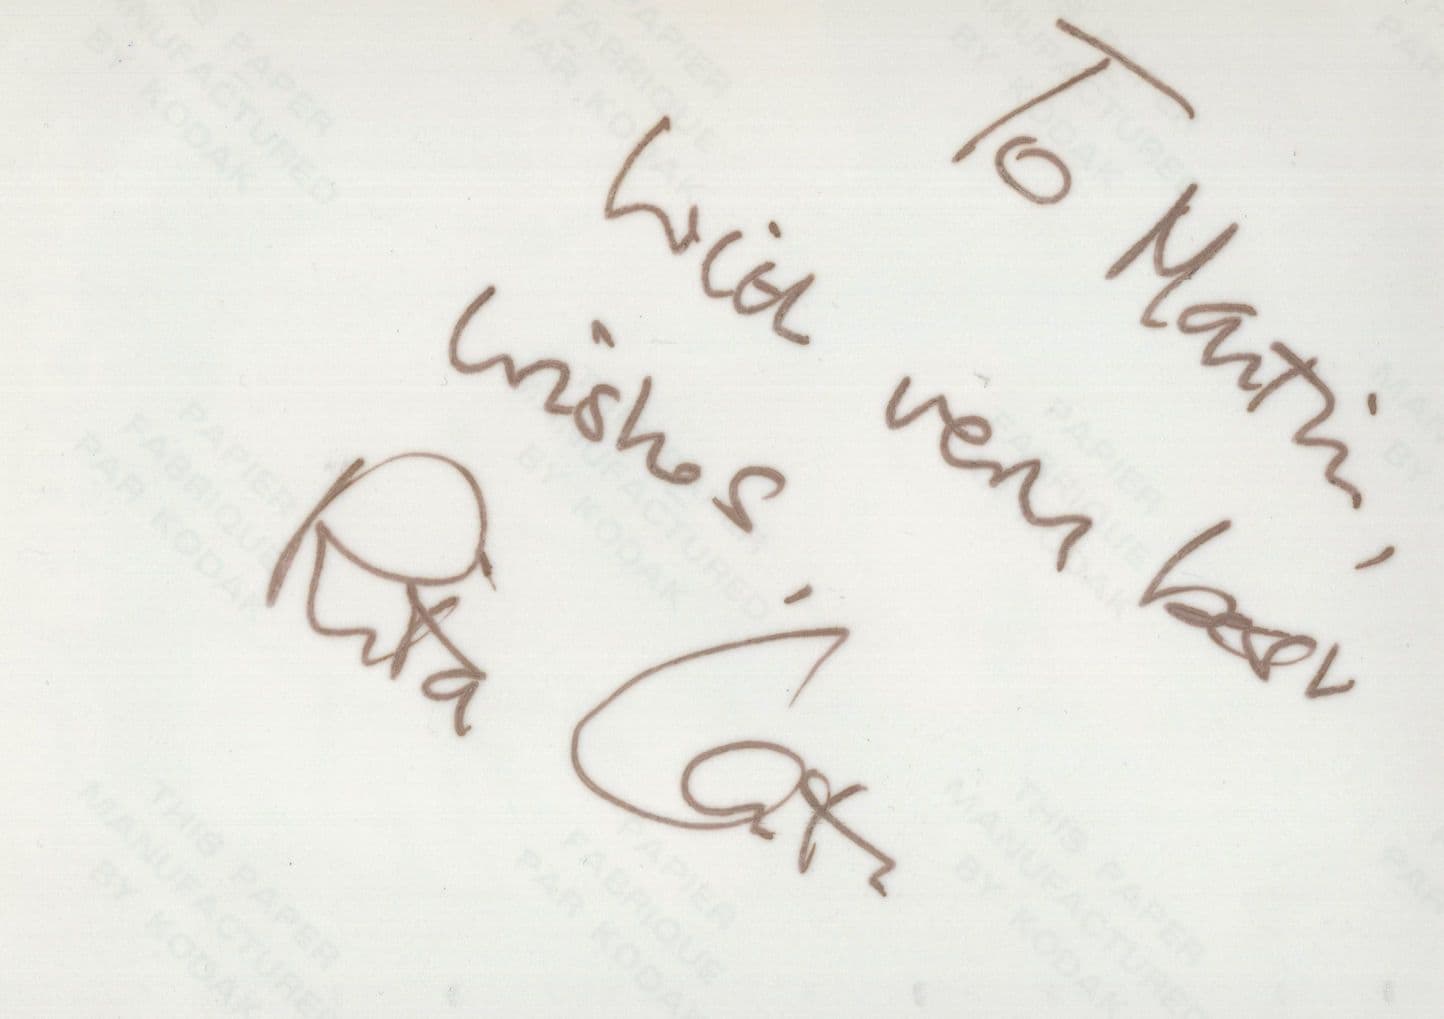 To Martin,
With very best
wishes
Rita
PAPER
MANUFACTURED
BY KODAK
PAPIER
FABRIQUE
PAR KODAK
MANUFACTURED
BY KODAK
PAPIER
FABRIQUE
PAR KODAK
MANUFACTURED
BY KODAK
PAPIER
FABRIQUE
THIS PAPER
MANUFACTURED
BY KODAK
PAPIER
FABRIQUE
PAR KODAK
THIS PAPER
MANUFACTURED
BY KODAK